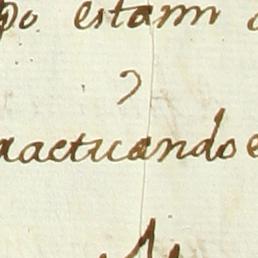 po. estann
aactuando e